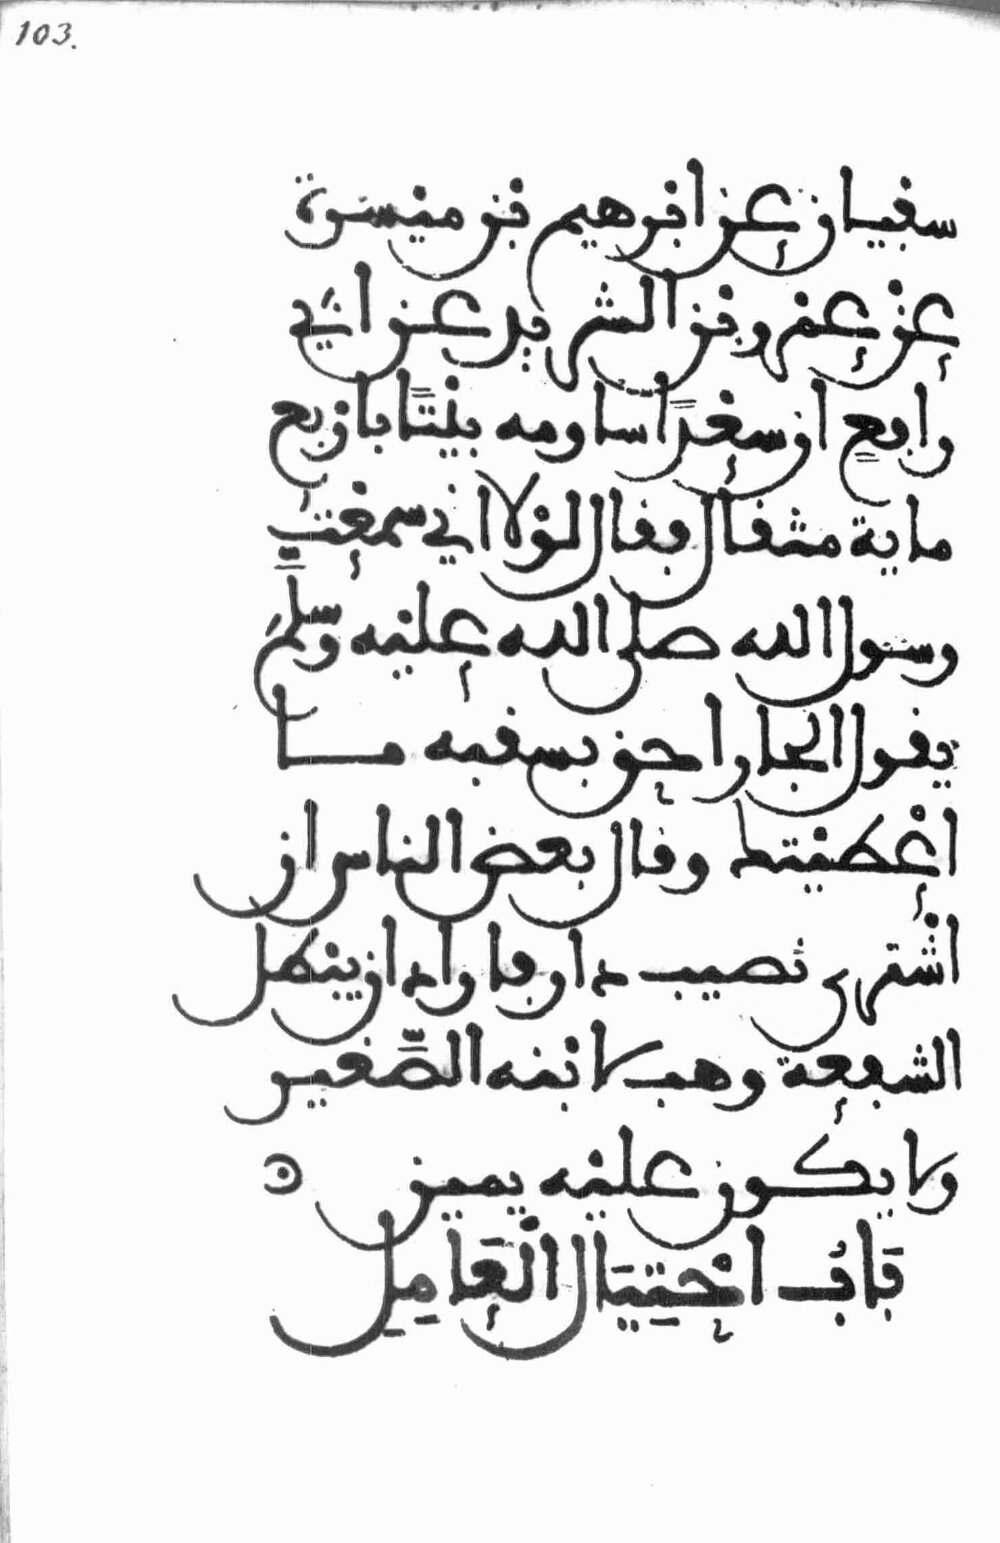 103.
سفيان عن ابرهيم بن ميسرة
عن عمرو بن الشريد عن ابي
رابع ان سعدا ساومه بيتا باربع
ماية مثقال وقال لولا اني سمعت
رسول الله صلى الله عليه وسلم
يقول الجار احق بسقبه ما
اعطيتك وقال بعض الناس ان
اشترى نصيب دار فاراد ان يبطل
الشفعة وهب لابنه الصغير
ولا يكون عليه يمين
باب احتيال العامل